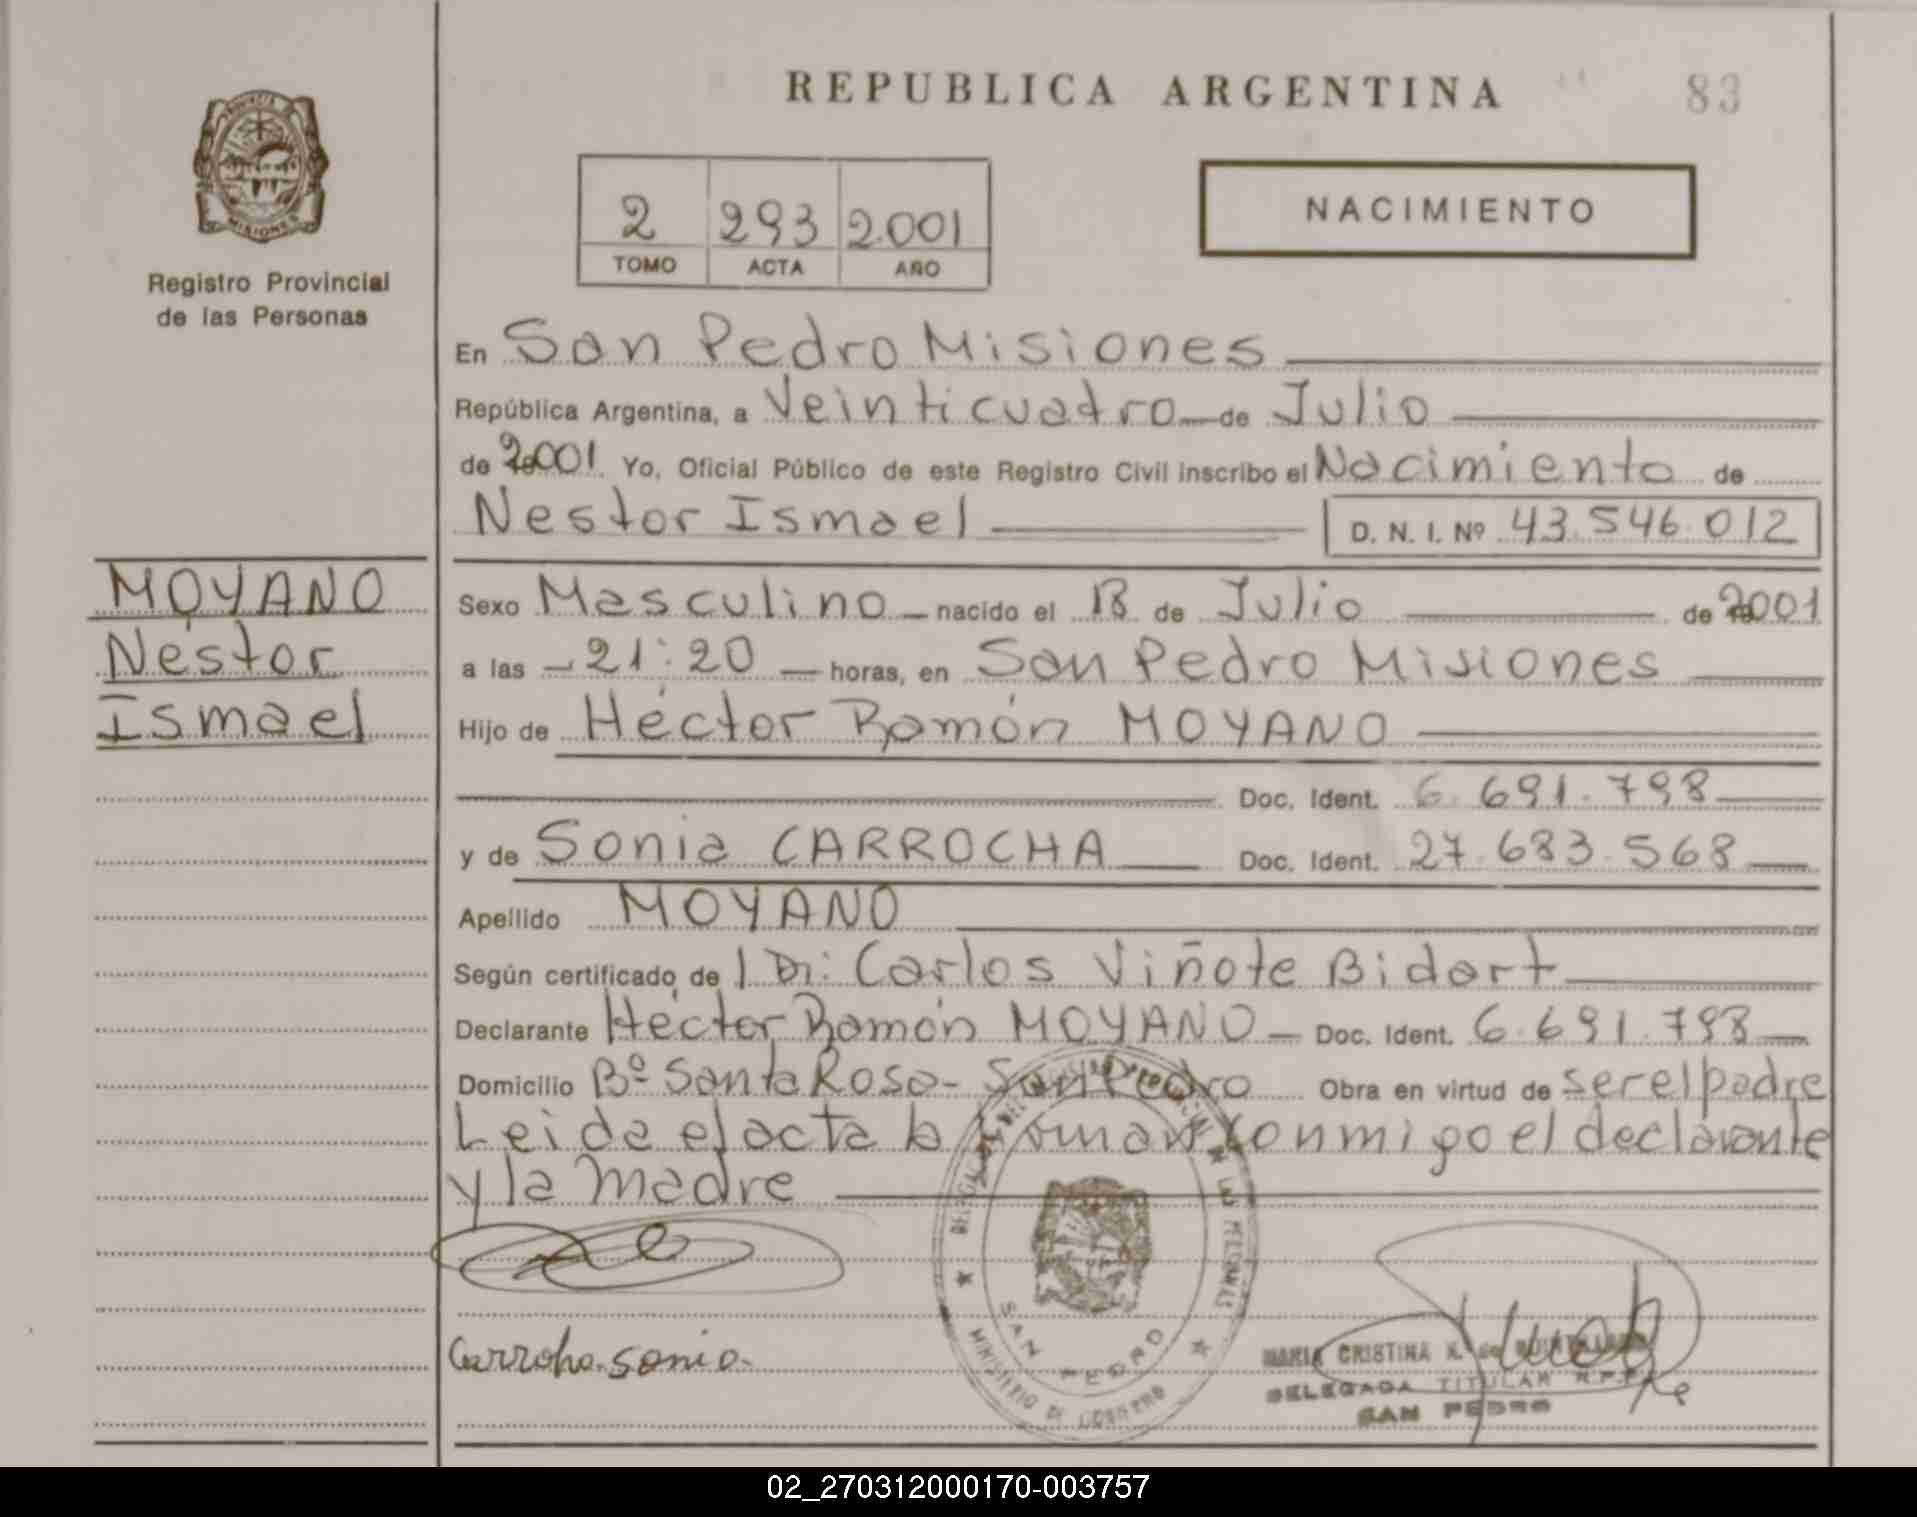 REPUBLICA ARGENTINA
83
Registro Provincial
de las Personas
2 293 2.001
TOMO ACTA AÑO
NACIMIENTO
En San Pedro Misiones
República Argentina, a Veinticuatro de Julio
de 2001 Yo, Oficial Público de este Registro Civil inscribo el Nacimiento de
Nestor Ismael D. N. I. Nº 43.546.012
MOYANO
Néstor
Ismael
Sexo Masculino nacido el 13 de Julio de 2001
a las 21:20 horas, en San Pedro Misiones
Hijo de Héctor Ramón MOYANO
Doc. Ident. 6.691.798
y de Sonia CARROCHA Doc. Ident. 27.683.568
Apellido MOYANO
Según certificado de Dr: Carlos Viñote Bidart
Declarante Héctor Ramón MOYANO Doc. Ident. 6.691.798
Domicilio Bº Santa Rosa - San Pedro Obra en virtud de ser el padre
Leida el acta la firman conmigo el declarante
y la madre
Carroha sonia.
SAN PEDRO
MINISTERIO DE GOBIERNO
MARIA CRISTINA
DELEGADA TITULAR R.P.P.
SAN PEDRO
02_270312000170-003757